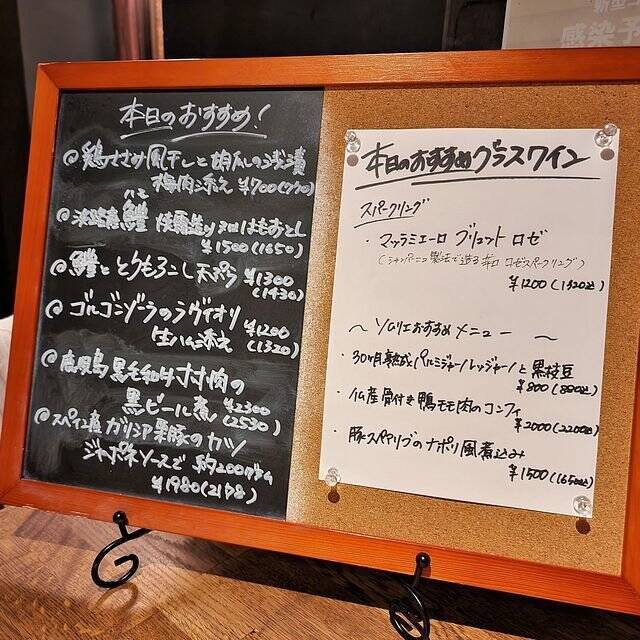 本日のおすすめ!
@鶏ササミ風干しと胡瓜の浅漬
梅肉添え ¥700(770)
@淡路産鱧
ハモ
¥1500(1650)
@鱧ととうもろこし天ぷら ¥1300
(1430)
@ゴルゴンゾーラのラヴィオリ
生ハム添え ¥1200
(1320)
@鹿児島黒毛和牛すね肉の
黒ビール煮 ¥2300
(2530)
@スペイン産ガリシア栗豚のカツ
ジャポネソースで 約200グラム
¥1980(2178)
本日のおすすめグラスワイン
スパークリング
・マッラミエーロ ブリュット ロゼ
(シャンパーニュ製法で造る辛口ロゼスパークリング)
¥1200(1320込)
〜ソムリエおすすめメニュー〜
・30ヶ月熟成パルミジャーノレッジャーノと黒枝豆
¥800(880込)
・仏産骨付き鴨モモ肉のコンフィ
¥2000(2200込)
・豚スペアリブのナポリ風煮込み
¥1500(1650込)
感染予